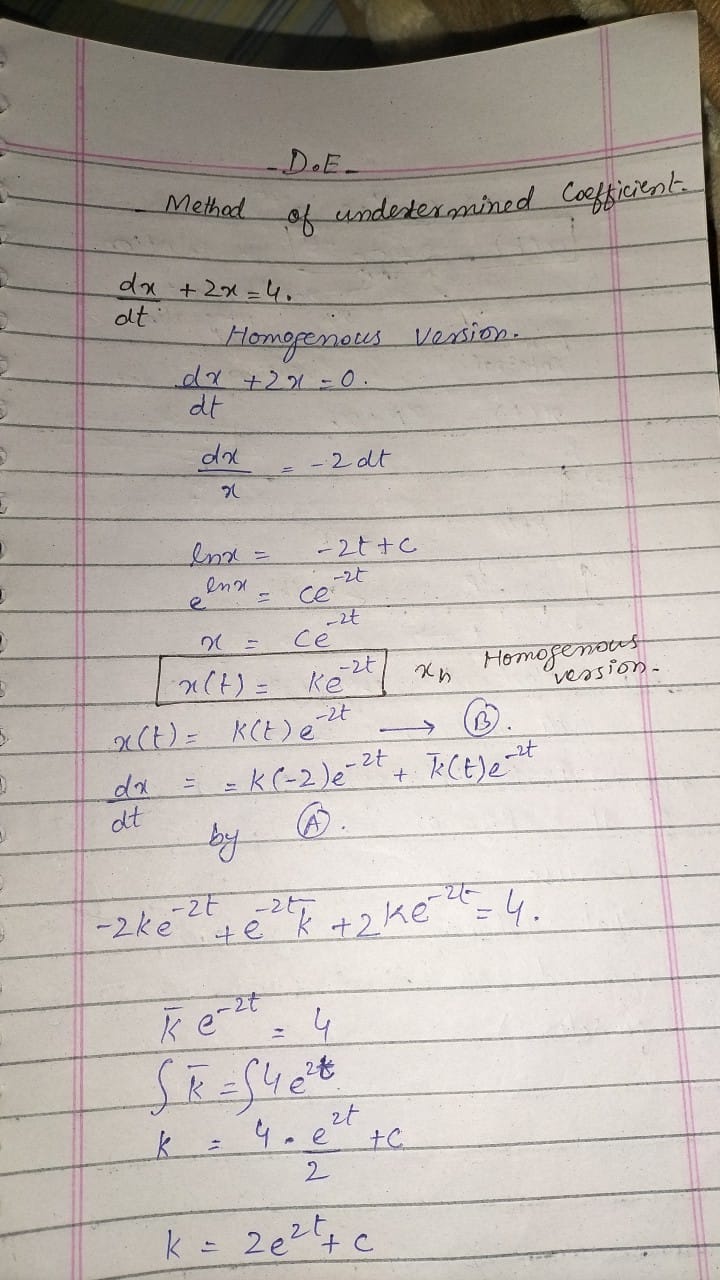 - D.E -
- Method of undetermined Coefficient.
dx/dt + 2x = 4.
Homogenous version.
dx/dt + 2x = 0.
dx/x = -2dt
lnx = -2t + c
e^lnx = ce^-2t
x = ce^-2t
x(t) = ke^-2t xₕ Homogenous version-
x(t) = k(t)e^-2t → Ⓑ.
dx/dt = = k(-2)e^-2t + k̄(t)e^-2t
by Ⓐ.
-2ke^-2t + e^-2t k̄ + 2ke^-2t = 4.
k̄ e^-2t = 4
∫ k̄ = ∫4e^2t
k = 4 . e^2t/2 + c
k = 2e^2t + c